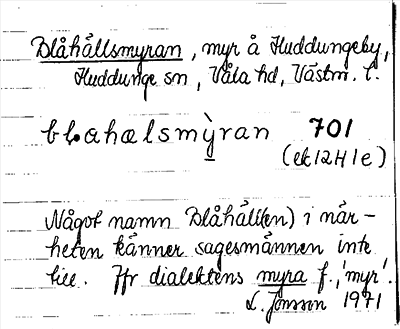 Blåhällsmyran, myr å Huddungeby,
Huddunge sn, Våla hd, Västm. l.
blahælsmỳran 701
(ek 12H 1e)
Något namn Blåhäll(en) i när-
heten känner sagesmannen inte
till. Jfr dialektens myra f., 'myr'.
L. Jonsson 1971